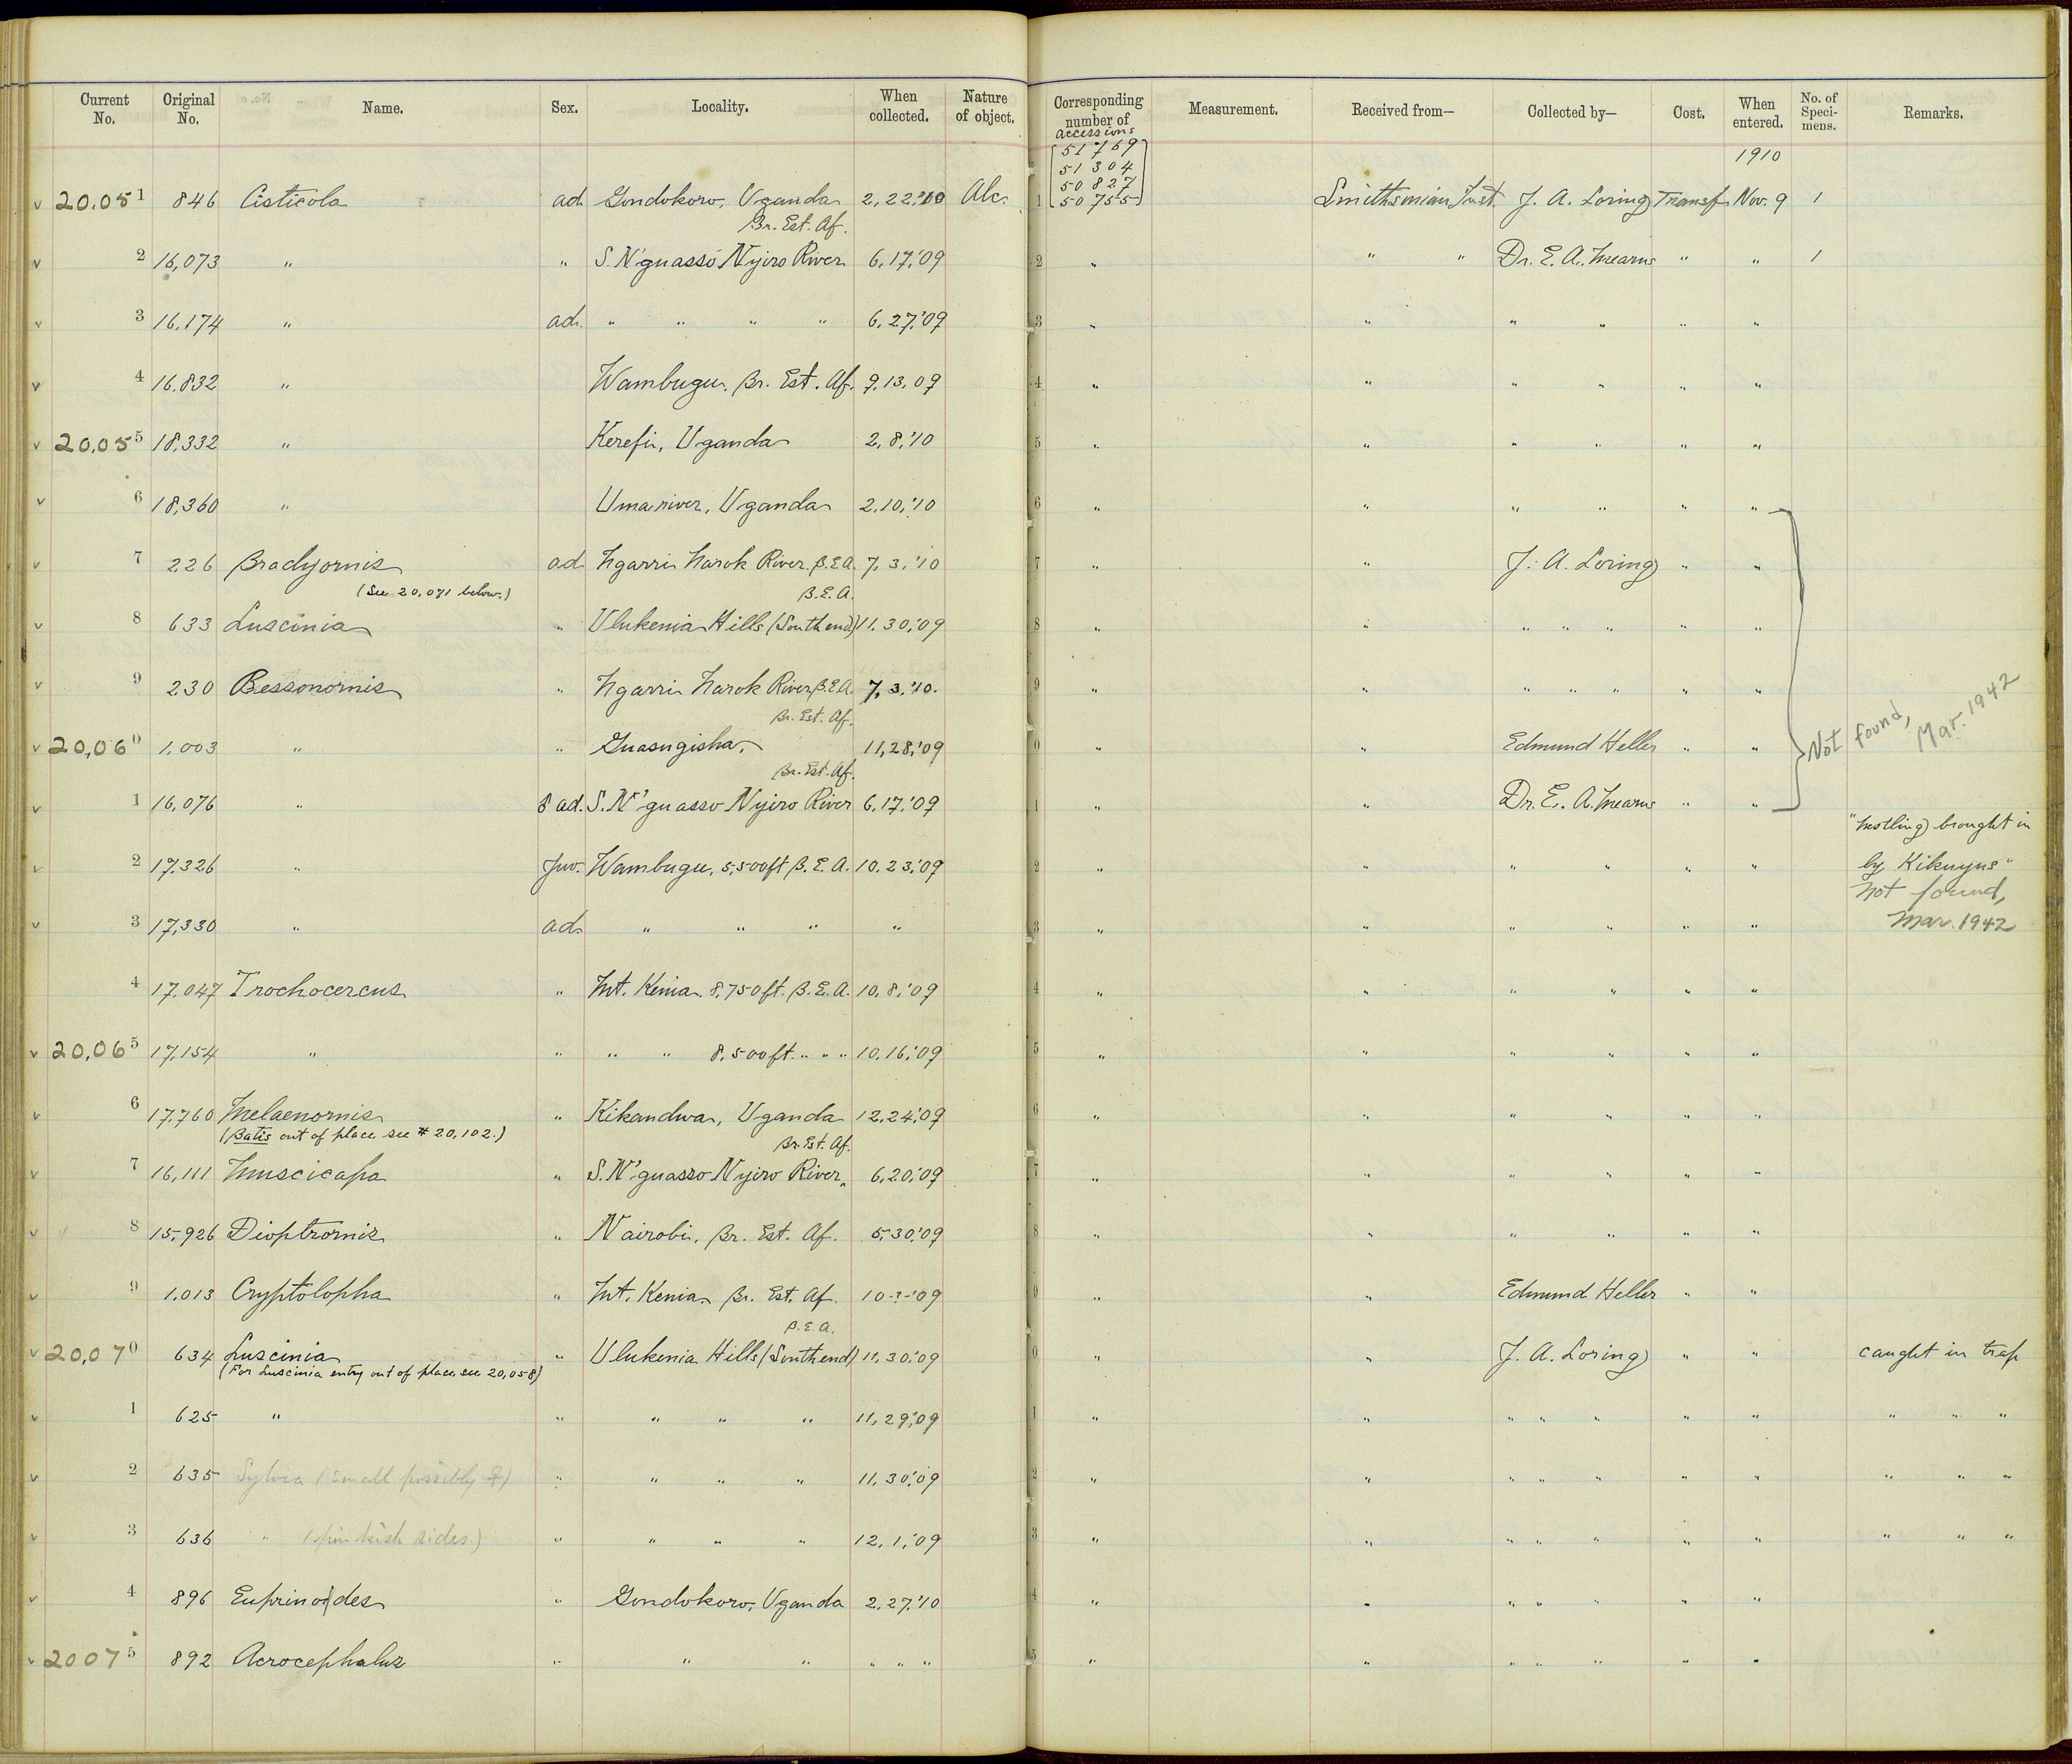 Current No. Original No. Name. Sex. Locality. When collected. Nature of object. Corresponding number of accessions Measurement. Received from— Collected by— Cost. When entered. No. of Specimens. Remarks.
51769
51304
50827
50755
1910
20,051 846 Cisticola ad. Gondokoro, Uganda 2,22,'10 Alc. 1 Smithsonian Inst. J. A. Loring Transf. Nov. 9 1
Br. Est. Af.
2 16,073 " " S. N'guasso Nyiro River 6,17,'09 2 " " " Dr. E. A. Mearns " " 1
3 16,174 " ad. " " " " 6,27,'09 3 " " " " " "
4 16,832 " Wambugu, Br. Est. Af. 9,13,09 4 " " " " " "
20,055 18,332 " Kerefu, Uganda 2,8,'10 5 " " " " " "
6 18,360 " Uma river, Uganda 2,10,'10 6 " " " " " "
7 226 Bradyornis ad. Ngarri Narok River. B.E.A. 7,3,'10 7 " " J. A. Loring " "
(See 20,071 below.)
B.E.A.
8 633 Luscinia " Ulukenia Hills (South end) 11,30,'09 8 " " " " " " "
9 230 Bessonornis " Ngarri Narok River B.E.A. 7,3,'10. 9 " " " " " " "
Br. Est. Af.
Not found, Mar. 1942
20,060 1,003 " " Guasugisha, 11,28,'09 0 " " Edmund Heller " "
Br. Est. Af.
1 16,076 " ad. S. N'guasso Nyiro River 6,17,'09 1 " " Dr. E. A. Mearns " "
"Nestling brought in
2 17,326 " Juv. Wambugu, 5,500ft B.E.A. 10,23,'09 2 " " " " " " by Kikuyus"
Not found,
3 17,330 " ad. " " " " 3 " " " " " " Mar. 1942
4 17,047 Trochocercus " Mt. Kenia. 8,750ft. B.E.A. 10,8,'09 4 " " " " " "
20,065 17,154 " " " " 8,500ft. " " " 10,16,'09 5 " " " " " "
6 17,760 Melaenornis " Kikandwa, Uganda 12,24,'09 6 " " " " " "
(Batis out of place see # 20,102.)
Br. Est. Af.
7 16,111 Muscicapa " S. N'guasso Nyiro River, 6,20,'09 7 " " " " " "
8 15,926 Dioptrornis " Nairobi, Br. Est. Af. 5,30,'09 8 " " " " " "
9 1,013 Cryptolopha " Mt. Kenia, Br. Est. Af. 10-?-'09 9 " " Edmund Heller " "
B.E.A.
20,070 634 Luscinia " Ulukenia Hills (South end) 11,30,'09 0 " " J. A. Loring " " caught in trap
(For Luscinia entry out of place, see 20,058)
1 625 " " " " " 11,29,'09 1 " " " " " " " " " "
2 635 Sylvia (small possibly ♀) " " " " 11,30,'09 2 " " " " " " " " " "
3 636 " (pinkish sides.) " " " " 12,1,'09 3 " " " " " " " " " "
4 896 Euprinodes " Gondokoro, Uganda 2,27,'10 4 " " " " " " "
20075 892 Acrocephalus " " " " " " 5 " " " " " " "